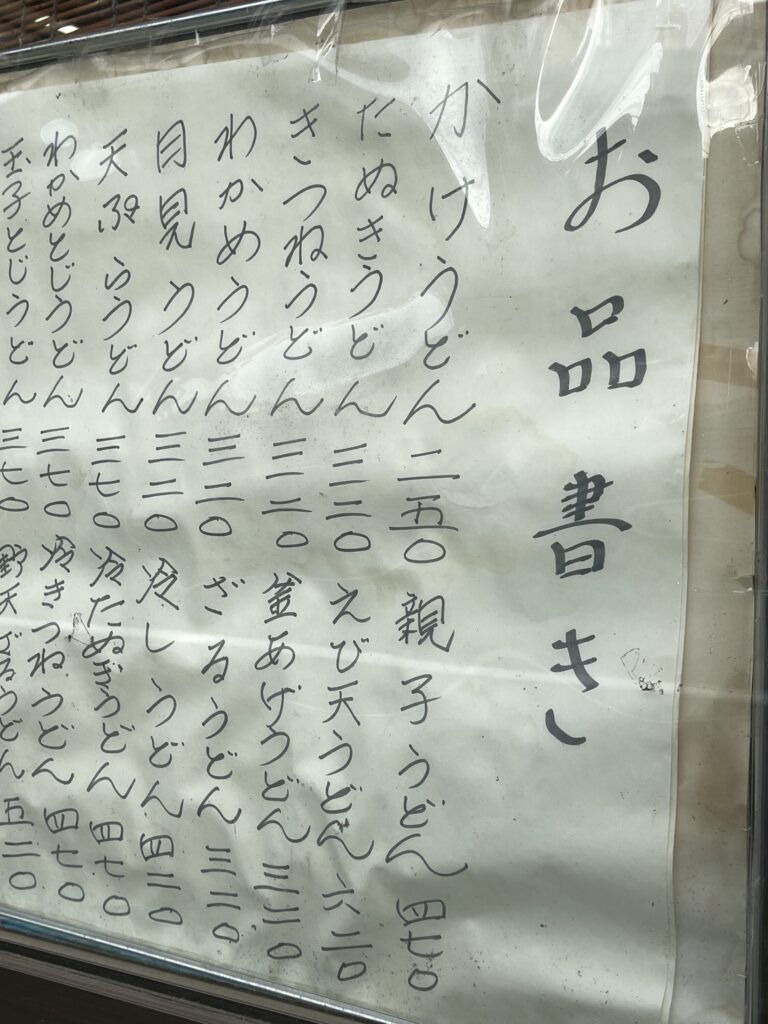 お品書き
かけうどん 二五〇
たぬきうどん 三二〇
きつねうどん 三二〇
わかめうどん 三二〇
月見うどん 三二〇
天ぷらうどん 三七〇
わかめとじうどん 三七〇
玉子とじうどん 三七〇
親子うどん 四七〇
えび天うどん 六二〇
釜あげうどん 三二〇
ざるうどん 三二〇
冷しうどん 四二〇
冷たぬきうどん 四七〇
冷きつねうどん 四七〇
野天ざるうどん 五二〇